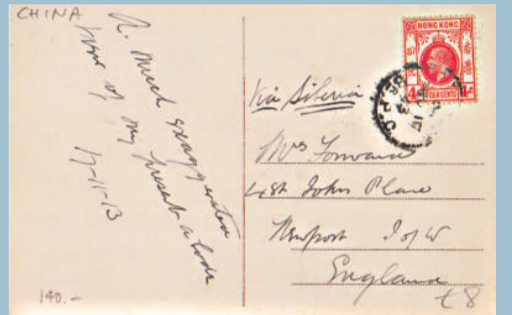 CHINA
A much exaggerated
view of my present abode
17-11-13
140.-
HONG KONG
香港
4 FOUR CENTS 4
Via Siberia
Mrs Forward
4 St Johns Place
Newport I of W
England
£8